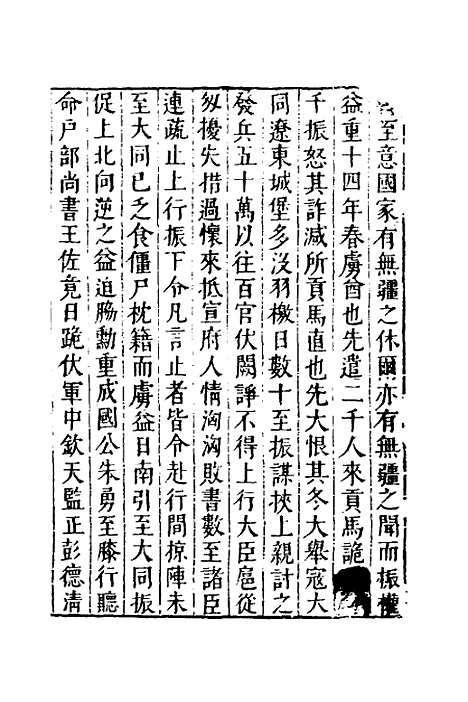 至意國家有無疆之休爾亦有無疆之聞而振權
益重十四年春虜酋也先遣二千人來貢馬詭
千振怒其詐减所貢馬直也先大恨其冬大舉寇大
同遼東城堡多沒羽檄日數十至振謀挾上親計之
發兵五十萬以往百官伏闕諍不得上行大臣扈從
匆擾失措過懷來抵宣府人情洶洶敗書數至諸臣
連疏止上行振下令凡言止者皆令赴行間掠陣未
至大同已乏食僵尸枕籍而虜益日南引至大同振
促上北向逆之益迫脇勳重成國公朱勇至膝行聽
命戶部尚書王佐竟日跪伏軍中欽天監正彭德清